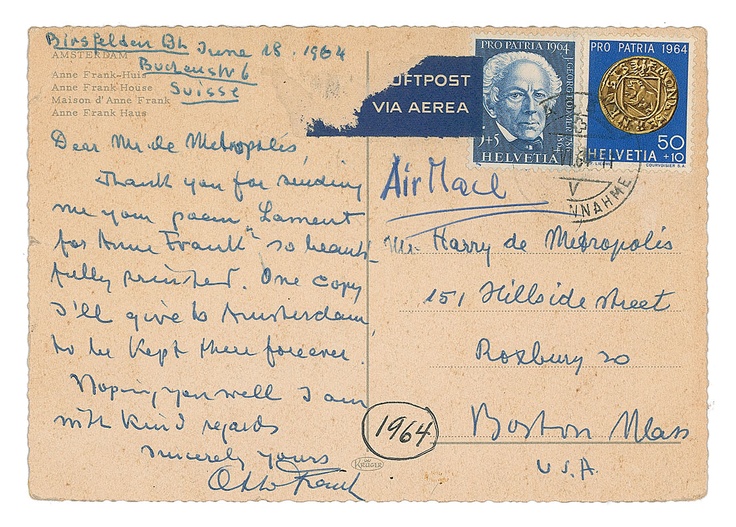 Birsfelden BL June 18. 1964
Buchenstr 6
Suisse
AMSTERDAM
Anne Frank-Huis
Anne Frank House
Maison d'Anne Frank
Anne Frank Haus
Dear Mr. de Metropolis,
Thank you for sending
me your poem "Lament
for Anne Frank" so beauti-
fully printed. One copy
I'll give to Amsterdam,
to be kept there forever.
Hoping you well I am
with kind regards
sincerely yours
Otto Frank
LUFTPOST
VIA AEREA
PRO PATRIA 1964
HELVETIA
PRO PATRIA 1964
50
+10
HELVETIA
COURVOISIER S.A.
NNAHME
V
Air Mail
Mr. Harry de Metropolis
151 Hillside Street
Roxbury 20
Boston Mass
U.S.A.
1964
KRÜGER